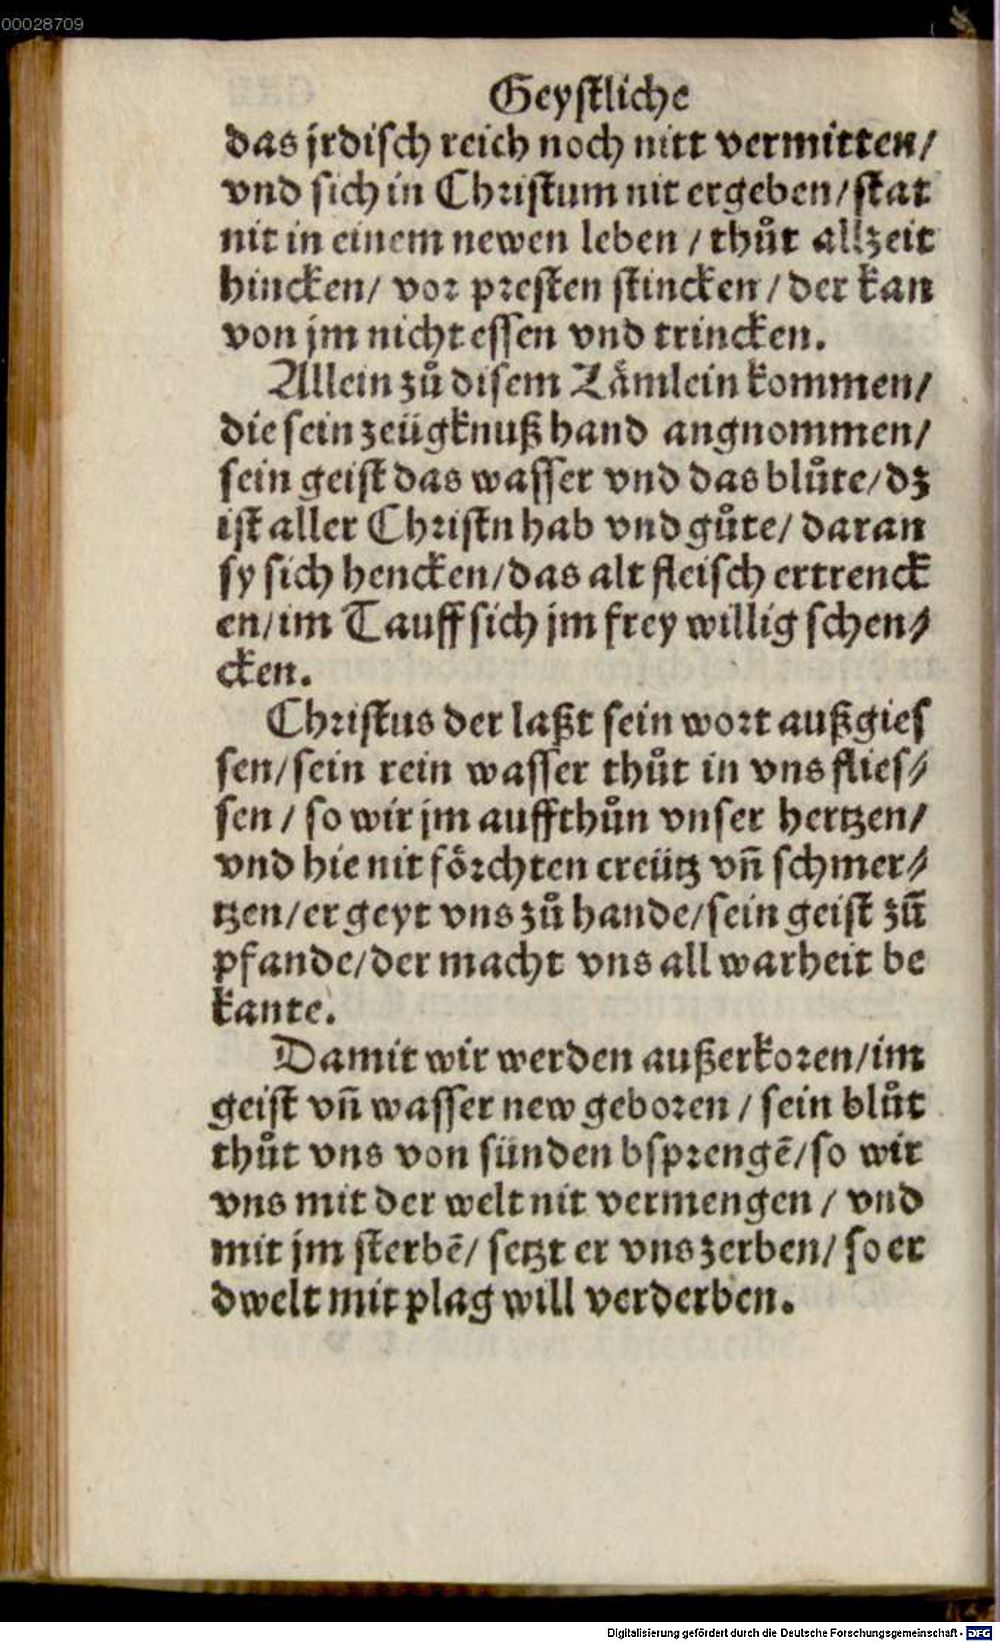 00028709
Geystliche
das jrdisch reich noch nitt vermitten/
vnd sich in Christum nit ergeben/stat
nit in einem newen leben / thůt allzeit
hincken/ vor presten stincken / der kan
von jm nicht essen vnd trincken.
Allein zů disem Lämlein kommen/
die sein zeügknuß hand angnommen/
sein geist das wasser vnd das blůte/dz
ist aller Christn hab vnd gůte/ daran
sy sich hencken/das alt fleisch ertrenck
en/im Tauff sich jm frey willig schen⸗
cken.
Christus der laßt sein wort außgies
sen/sein rein wasser thůt in vns flies⸗
sen / so wir jm auffthůn vnser hertzen/
vnd hie nit förchten creütz vñ schmer⸗
tzen/er geyt vns zů hande/sein geist zū
pfande/der macht vns all warheit be
kante.
Damit wir werden außerkoren/im
geist vñ wasser new geboren / sein blůt
thůt vns von sünden bsprengē/so wir
vns mit der welt nit vermengen / vnd
mit jm sterbē/ setzt er vns zerben/ so er
dwelt mit plag will verderben.
Digitalisierung gefördert durch die Deutsche Forschungsgemeinschaft - DFG